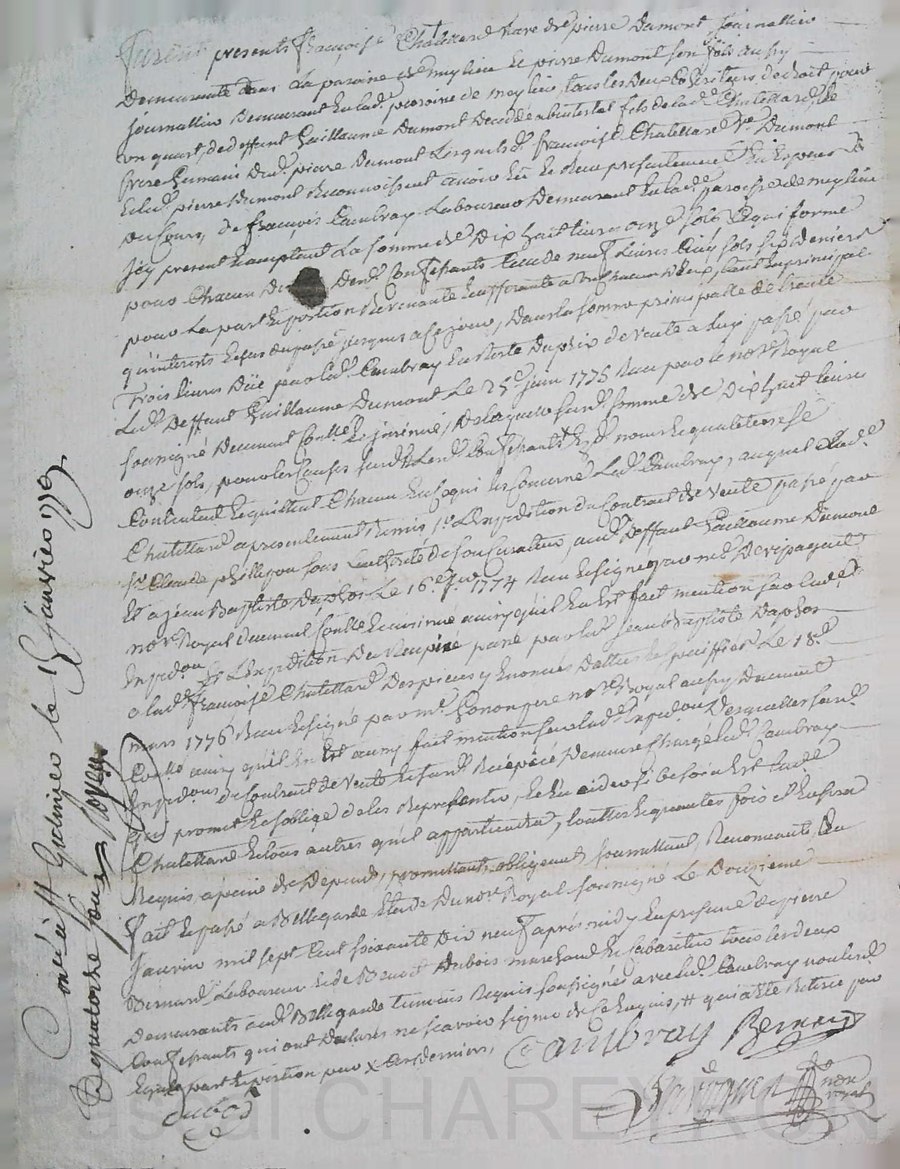 Furent presents françoise Chatellard vave de pierre Dumont Journallier
Demeurante dans La paroisse de meylieu Et pierre Dumont son fils aussy
journallier Demeurant En lad. paroisse de meylieu, tous les deux heritiers de droit pour
un quart, de deffunt Guillaume Dumont Decedé abintestat fils de lad. Chatellard, Et
frere Germain Dud. pierre Dumont Lesquels d. françoise Chatellard Ve. Dumont
Et lud. pierre Dumont Reconnoissent avoir Eu Et Reçu presentement
du sours, de françois Cambray Laboureur Demeurant En lad. paroisse de meylieu
Icy present Comptant La somme de Dix huit livres onze sols Ce qui forme
pour Chacun De Confessants Celle de neuf Livres Cinq sols six deniers
pour La part Et portion Revenante Et afferante a un chacun d'Eux, tant En principal
qu'interets Echus du passé jusques a ce jour, Dans la somme principalle de trente
Trois livres Düe par led. Cambray En Reste Du prix de vente a luy passé par
Led. Deffunt Guillaume Dumont Le 25e. juin 1775 Reçu par le nore. Royal
soussigné Deument Collé Et jnsinué, De laquelle surd. somme de Dix huit livres
onze sols, pour les Causes surd. Lesd. Confessants Esd. noms Et qualités se
Contentent Et quittent Chacun En ce qui les Concerne Led. Cambray, auquel lad.
Chatellard a presentement Remis 1o. L'Expedition du Contrat de vente passé par
sr. Claude sous L'authorité de son Curateur aud. Deffunt Guillaume Dumont
Et a jean Baptiste Daphos Le 16e. 7bre. 1774 Reçu Et signé par me.
nore. Royal Deument Collé Et insinué ainsy qu'il En Est fait mention sur lad.
Expedon. 2o. L'Expedition Du Recepicé passé par led. jean Baptiste Daphos
a lad. françoise Chatellard Des pieces y Enoncées Dattées Et speciffiées Le 18e.
mars 1776 Reçu Et signé par me. Gonon pere nore. Royal aussy Deument
Collé ainsy qu'il En Est aussy fait mention sur lad. Expedon. Desquelles surd.
Expedons. de Contract de vente Et surd. Recepicé Demeure Chargé led. Cambray
qui promet Et s'oblige de les Representer, Et En aider si besoin Est lad.
Chatellard Et tous autres qu'il appartiendra, touttes Et quantes fois il En sera
Requis a peine de Depends, promettants, obligeants, soumettants, Renonçants &a
fait Et passé a Bellegarde Etude Du nore. Royal soussigné Le Douzieme
Janvier mil sept Cent soixante Dix neuf après midy En presence de pierre
Bernard Laboureur Et de Benoit Dubois marchand Et Cabaretier tous les deux
Demeurants aud. Bellegarde temoins Requis soussignés avec led. Cambray non lesd.
Confessants qui ont Declarés ne scavoir signer de Ce Enquis, # qui a été Retirée par
Egale part Et portion par x Ces derniers,
Cambray Bernard
dubois
nore royal
Controllé a St Galmier le 19 janvier 1779
R quatorze sous
Pascal CHAREYRON